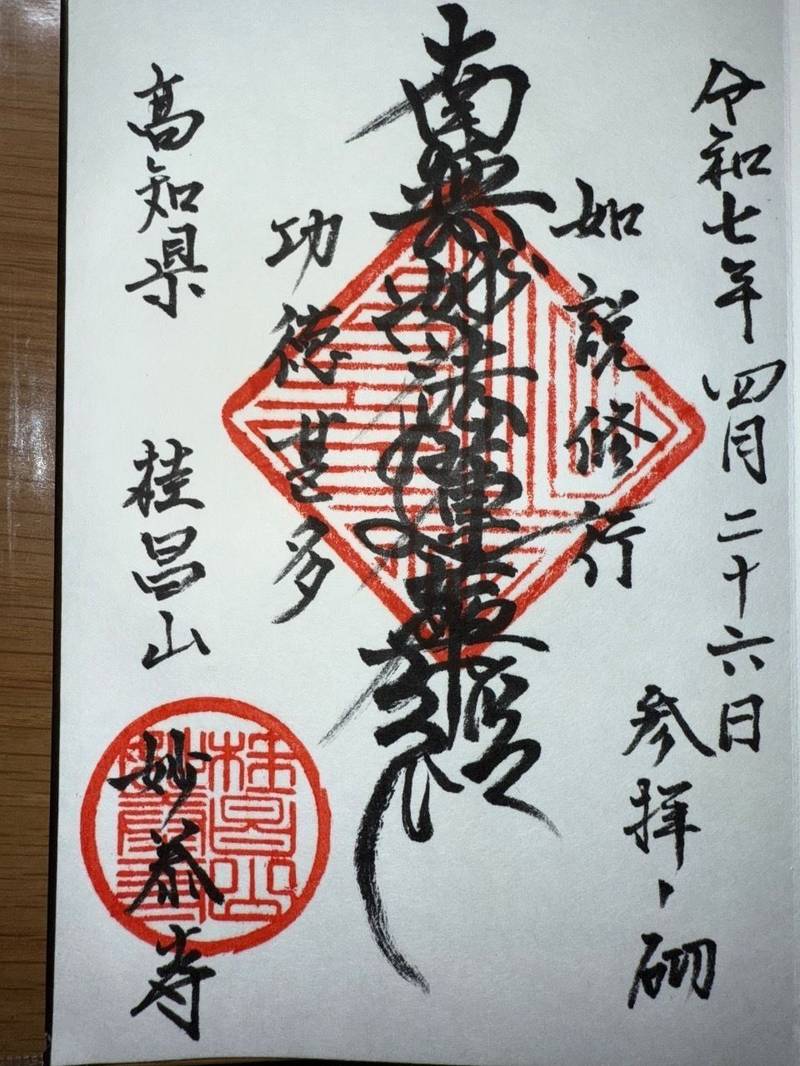 令和七年四月二十六日
参拝ヽ砌
如説修行
南無妙法蓮華経
功徳甚多
高知県 桂昌山
妙恭寺